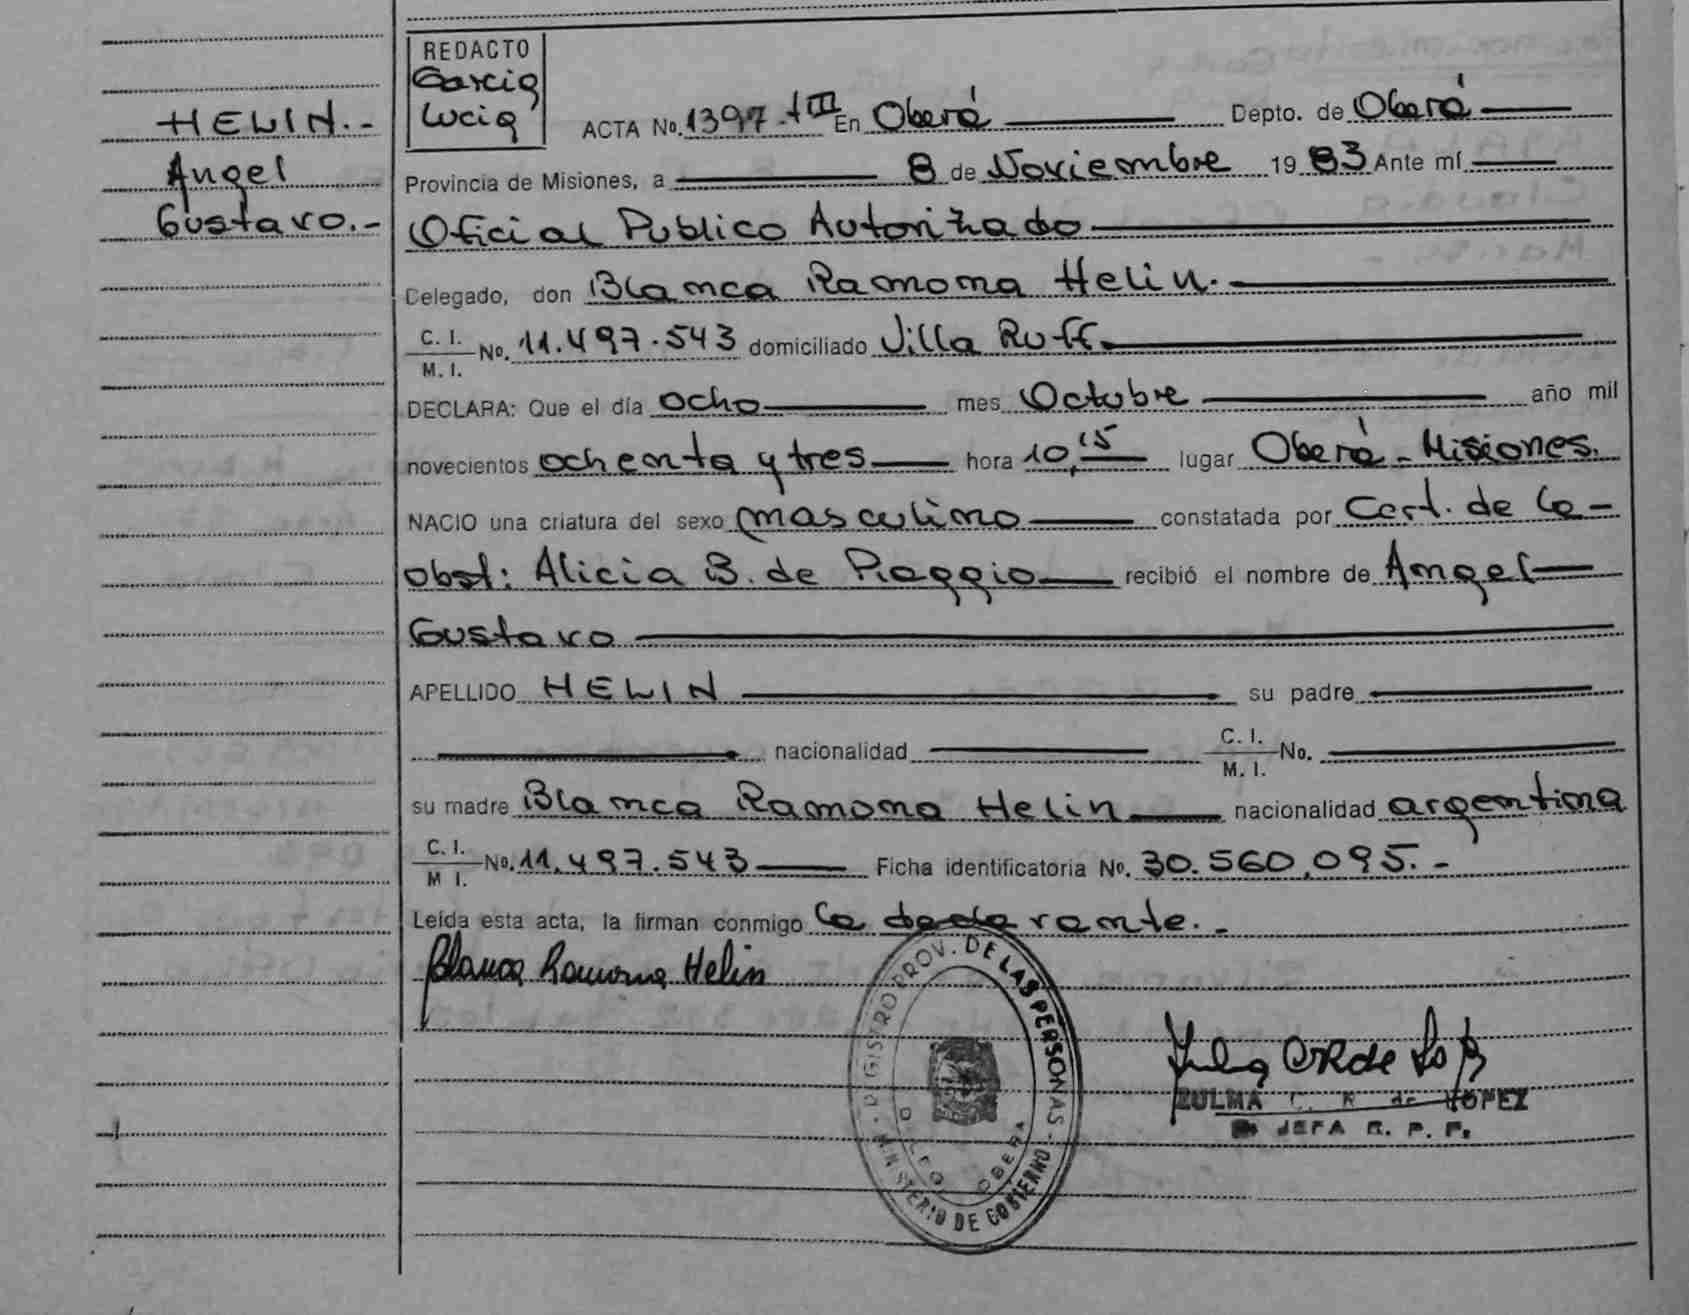 HELIN.-
Angel
Gustavo.-
REDACTO
Garcia
Lucia
ACTA No. 1397-tIII En Oberá Depto. de Oberá
Provincia de Misiones, a 8 de Noviembre 1983 Ante mí
Oficial Publico Autorizado
Delegado, don Blanca Ramona Helin.
C. I.
M. I. No. 11.497.543 domiciliado Villa Ruff.
DECLARA: Que el día ocho mes Octubre año mil
novecientos ochenta y tres hora 10,15 lugar Oberá - Misiones.
NACIO una criatura del sexo masculino constatada por Cert. de la
obst: Alicia B. de Piaggio recibió el nombre de Angel
Gustavo
APELLIDO HELIN su padre
nacionalidad C. I.
M. I. No.
su madre Blanca Ramona Helin nacionalidad argentina
C. I.
M I. No. 11.497.543 Ficha identificatoria No. 30.560.095.-
Leída esta acta, la firman conmigo la declarante.-
Blanca Ramona Helin
REGISTRO PROV. DE LAS PERSONAS
OBERA
MINISTERIO DE GOBIERNO
ZULMA C. R. de LOPEZ
JEFA R. P. P.